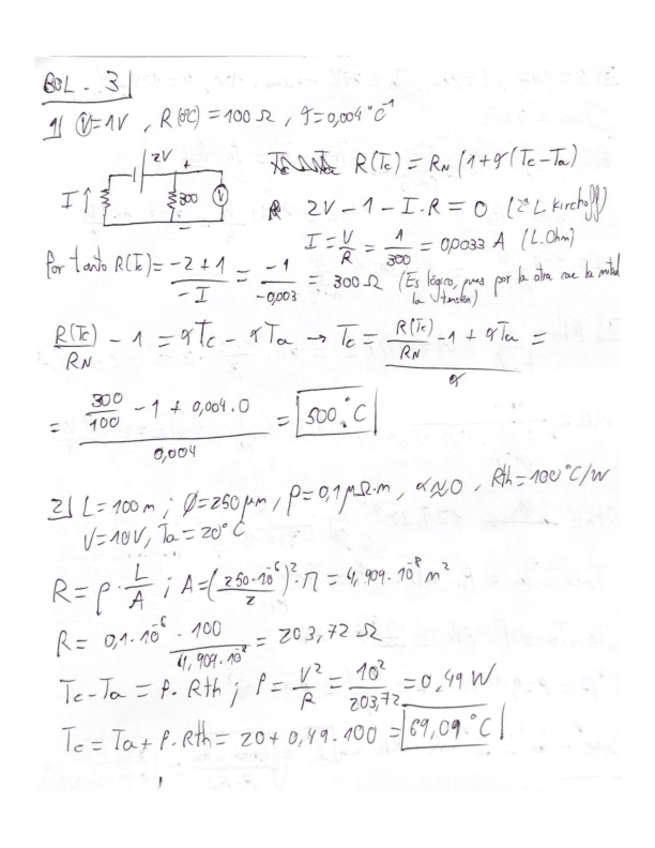 BOL - 3
1) Ⓥ=1V , R(0ºC) = 100 Ω , α=0,004 °C⁻¹
2V +
I ↑ 300 V
-
R(Tc) = RN (1+α(Tc-Ta)
2V - 1 - I·R = 0 (2ª L. Kirchoff)
I = V/R = 1/300 = 0,0033 A (L.Ohm)
Por tanto R(Tc) = (-2+1)/(-I) = (-1)/(-0,003) = 300 Ω (Es lógico, pues por la otra cae la mitad
la tensión)
R(Tc)/RN - 1 = αTc - αTa → Tc = (R(Tc)/RN - 1 + αTa)/α =
= (300/100 - 1 + 0,004.0)/0,004 = 500°C
2) L = 100 m ; Ø=250 μm , ρ=0,1 μΩ·m , α≈0 , Rth=100°C/W
V=10V, Ta=20°C
R = ρ · L/A ; A=(250·10⁻⁶/2)²·Π = 4,909·10⁻⁸ m²
R = 0,1·10⁻⁶ · 100/4,909·10⁻⁸ = 203,72 Ω
Tc-Ta = P·Rth ; P = V²/R = 10²/203,72 = 0,49 W
Tc = Ta + P·Rth = 20 + 0,49·100 = 69,09°C